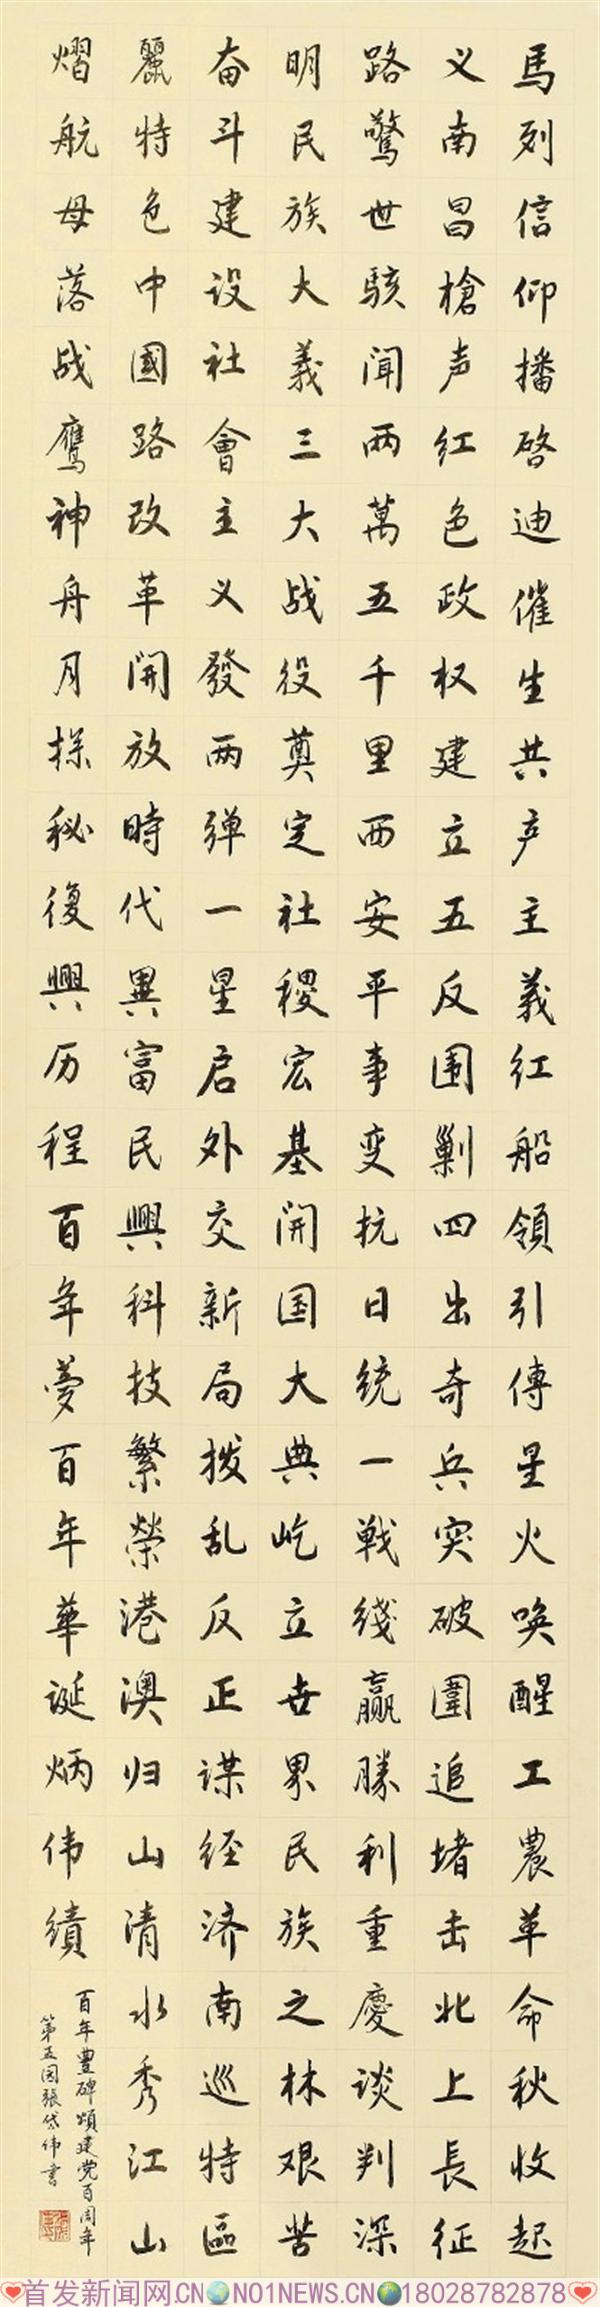 馬列信仰播啓迪催生共产主義红船領引傳星火唤醒工農革命秋收起
义南昌槍声红色政权建立五反围剿四出奇兵突破圍追堵击北上長征
路驚世駭闻两萬五千里西安平事变抗日统一戰綫赢勝利重慶谈判深
明民族大義三大战役奠定社稷宏基開国大典屹立世界民族之林艰苦
奋斗建设社會主义發两弹一星启外交新局拨乱反正谋经济南巡特區
麗特色中國路改革開放時代異富民興科技繁榮港澳归山清水秀江山
熠航母落战鹰神舟月探秘復興历程百年夢百年華诞炳伟績
百年豊碑頌建党百周年
第五国張岱伟書
首发新闻网.CN NO1NEWS.CN 18028782878